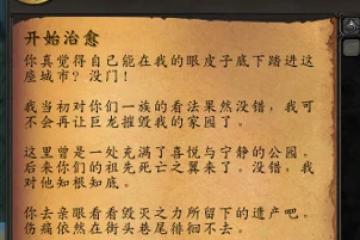 开始治愈
你真觉得自己能在我的眼皮子底下踏进这
座城市？没门！
我当初对你们一族的看法果然没错，我可
不会再让巨龙摧毁我的家园了。
这里曾是一处充满了喜悦与宁静的公园。
后来你们的祖先死亡之翼来了。没错，我
对他知根知底。
你去亲眼看看毁灭之力所留下的遗产吧。
伤痛依然在街头巷尾徘徊不去。